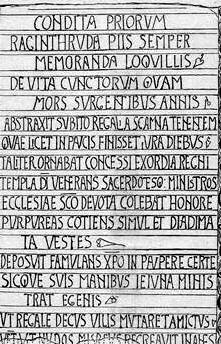 CONDITA PRIORUM
RAGINTHRUDA PIIS SEMPER
MEMORANDA LOQUILLIS
DE VITA CUNCTORUM QUAM
MORS SURGENTIBUS ANNIS
ABSTRAXIT SUBITO REGALIA SCAMNA TENENTEM
QUAE LICET IN PAUCIS FINISSET IURA DIEBUS
TALITER ORNABAT CONCESSI EXORDIA REGNI
TEMPLA DI VENERANS SACERDOTESQ: MINISTROS
ECCLESIAE SCO DEVOTA COLEBAT HONORE
PURPUREAS COTIENS SIMUL ET DIADIMA
TA VESTES
DEPOSUIT FAMULANS XPO IN PAUPERE CERTE
SICQUE SUIS MANIBUS IEIUNA MINIS
TRAT EGENIS
UT REGALE DECUS VILIS MUTARET AMICTUS